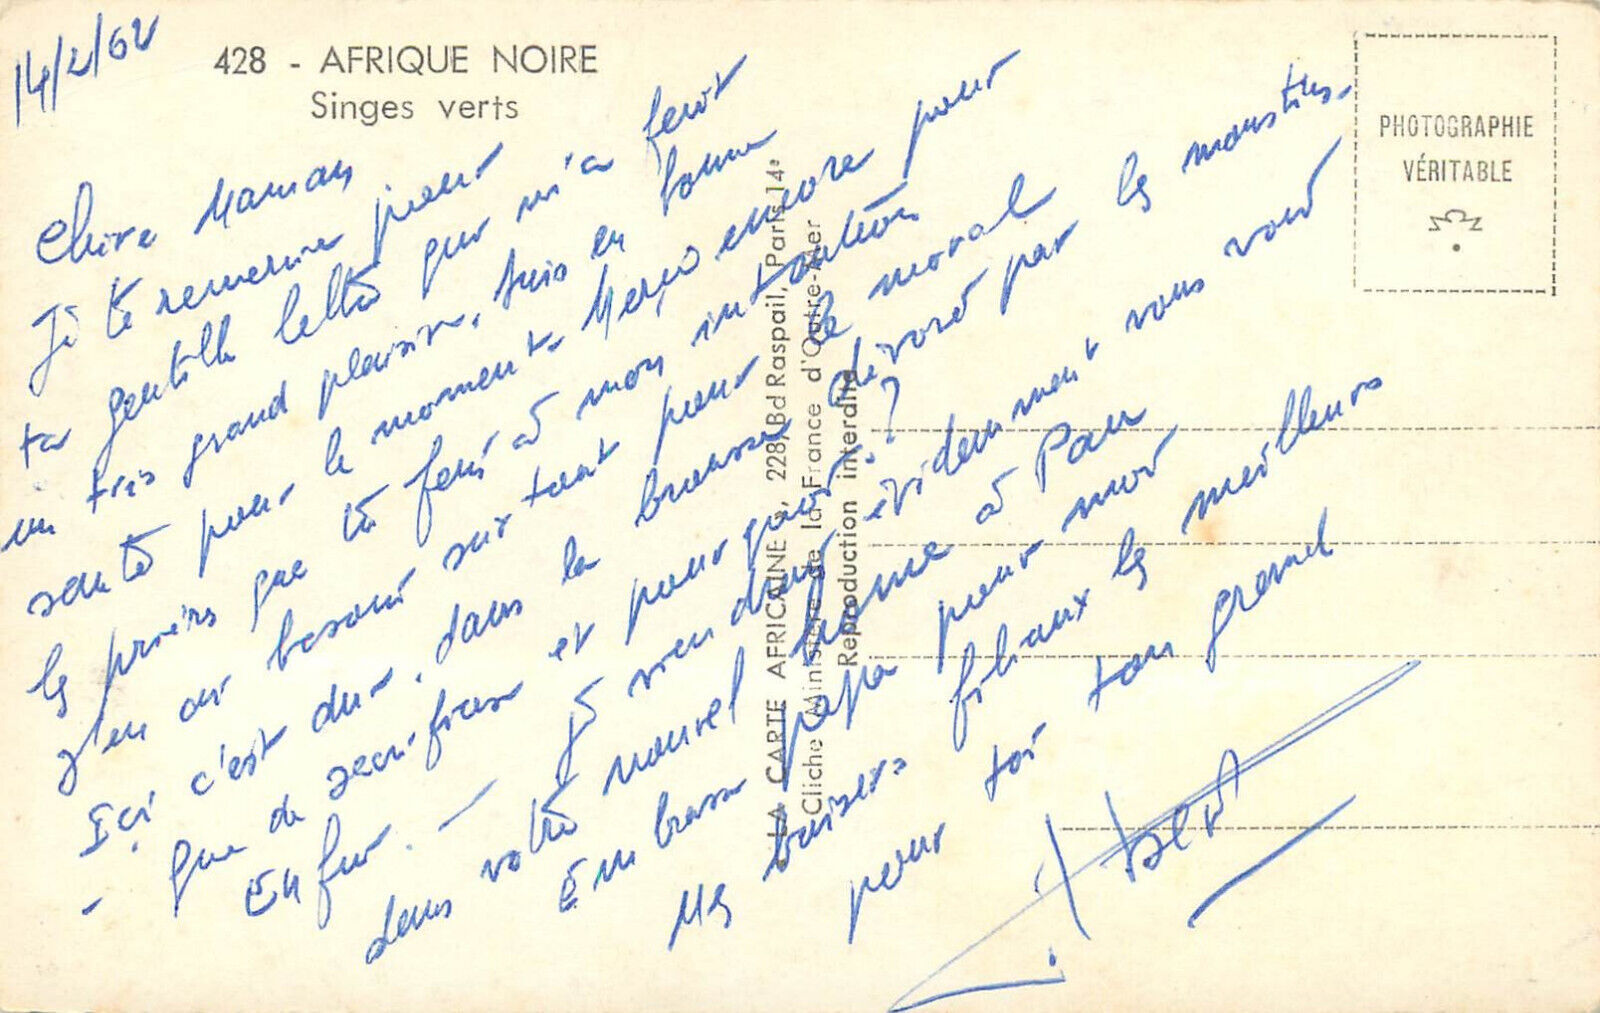 14/2/62
428 - AFRIQUE NOIRE
Singes verts
PHOTOGRAPHIE
VÉRITABLE
Chère Maman
Je te remercie pour
ta gentille lettre qui m'a fait
un très grand plaisir, suis en bonne
santé pour le moment. Merci encore pour
les prières que tu fais à mon intention
j'en ai besoin surtout pour le moral
Ici c'est dur, dans la brousse dévoré par les moustiques.
- que de sacrifices et pourquoi ?
Enfin. - Je viendrai évidemment vous voir
dans votre nouvel home à Pau
Embrasse papa pour moi
Mes baisers filiaux les meilleurs
pour toi ton grand
« LA CARTE AFRICAINE », 228, Bd Raspail, Paris 14e
Cliché Ministère de la France d'Outre-Mer
Reproduction interdite